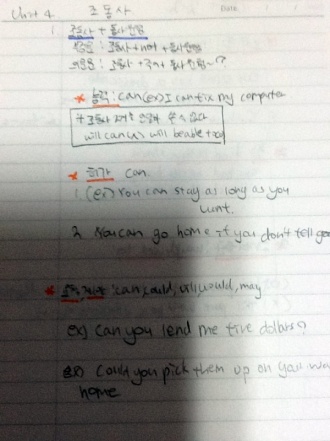 Unit 4. 조동사
Date
1 조동사 + 동사원형
부정문 : 조동사 + not + 동사원형
의문문 : 조동사 + 주어 + 동사원형~?
* 능력 : can (ex) I can fix my computer
+ 조동사 수 없다
will can(x) will be able to
* 허가 can.
1. (ex) You can stay as long as you
want.
2. You can go home if you don't tell
* can, could, will, would, may
ex) can you lend me five dollars?
ex) Could you pick them up on your
home